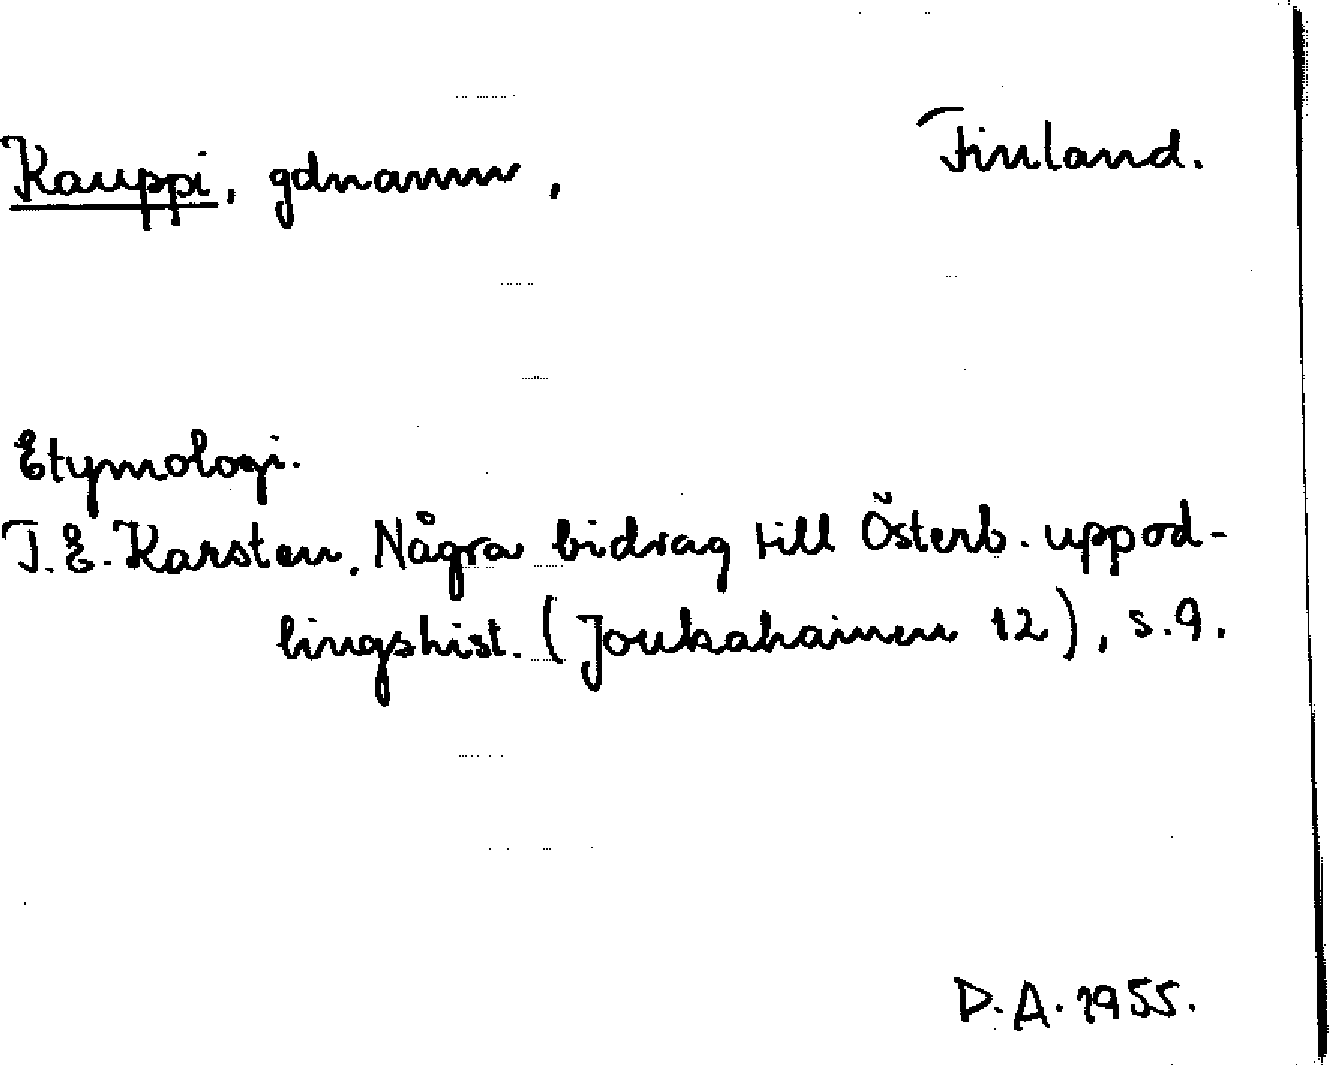 Kauppi, gdnamn, Finland.
Etymologi.
T.E. Karsten. Några bidrag till Österb. uppod-
lingshist. (Joukahainen 12), s. 9.
D.A. 1955.